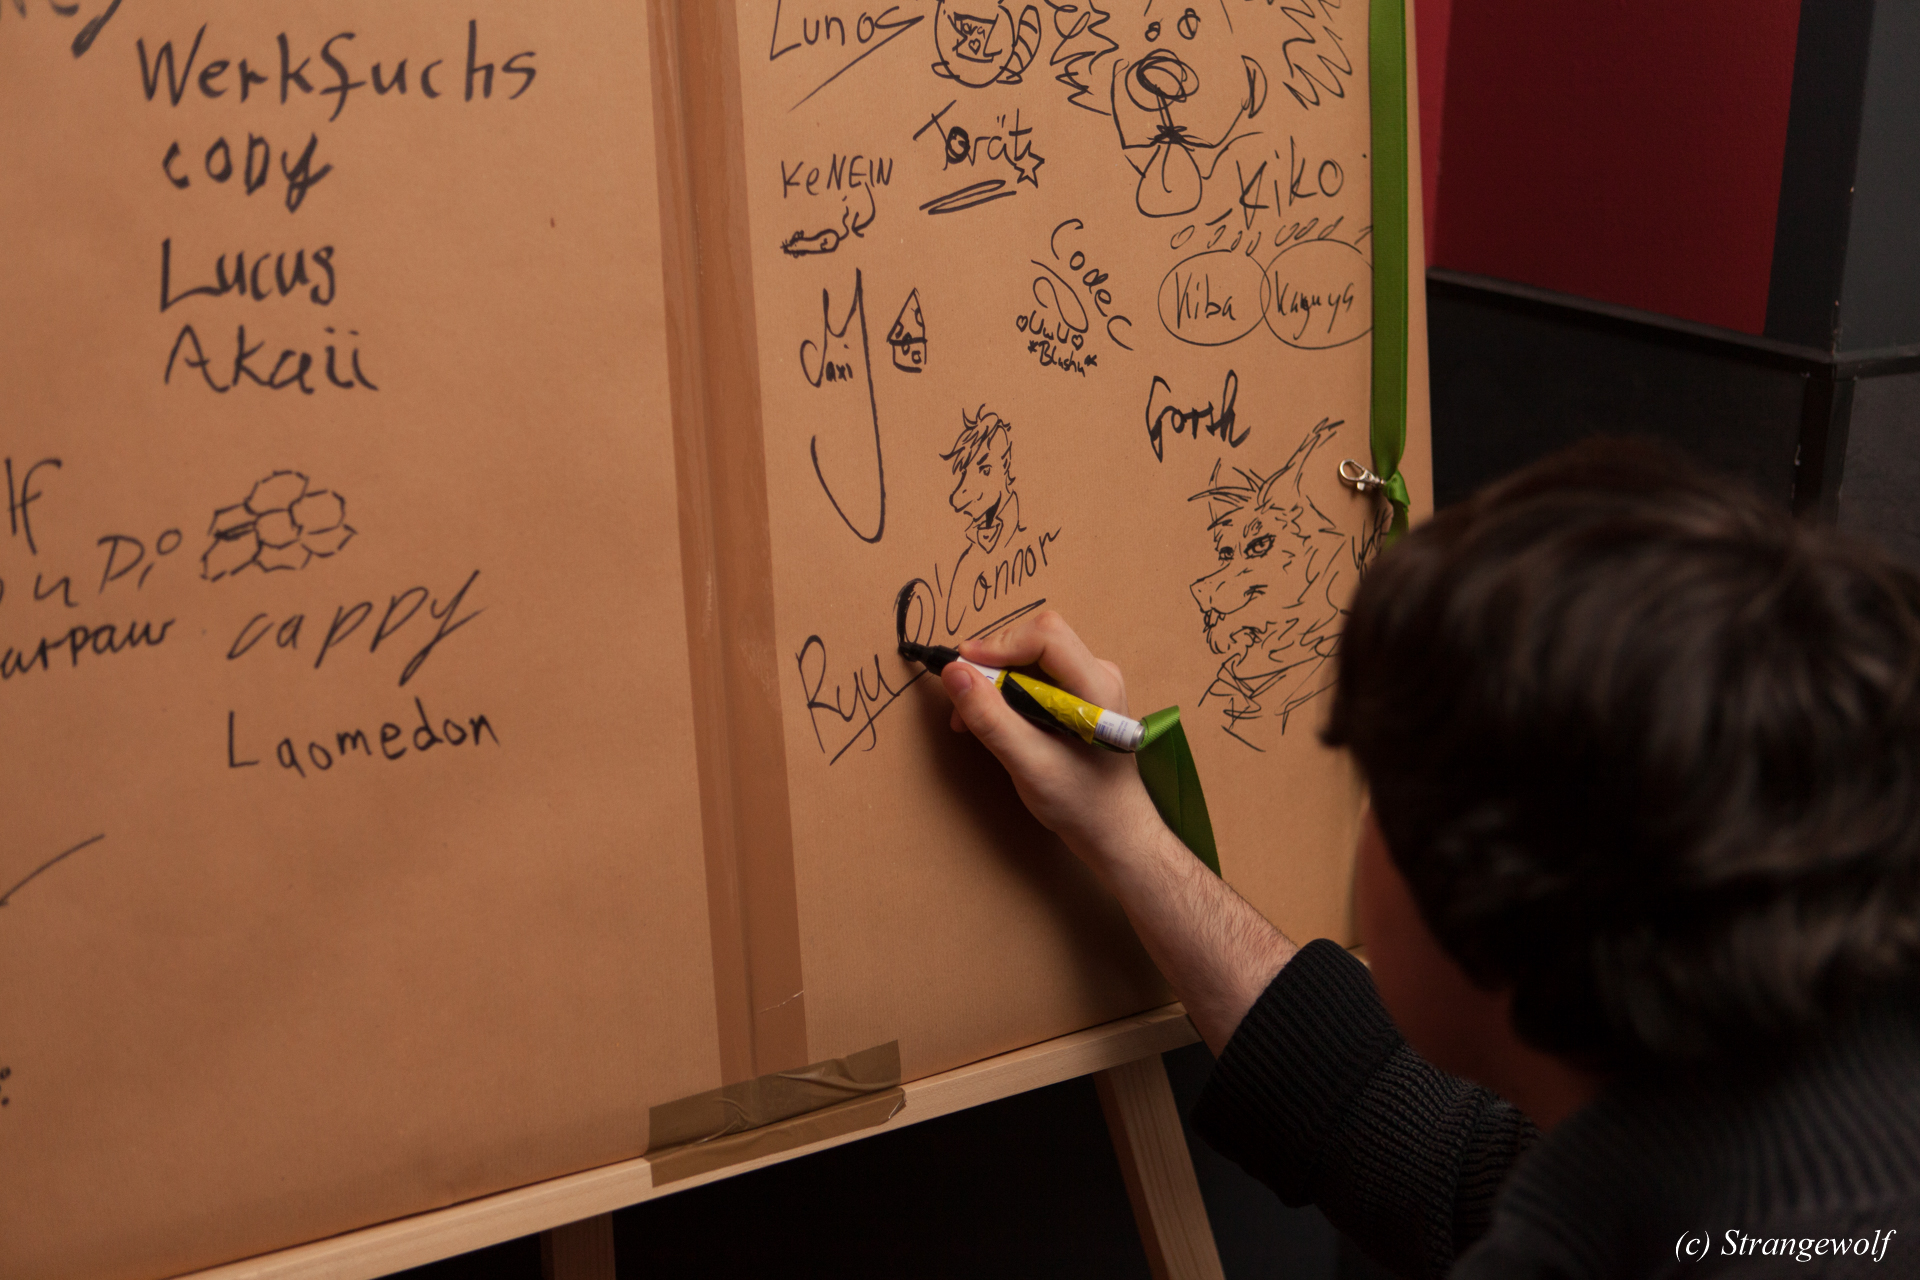 Werkfuchs
CODY
Lucus
Akaii
lf
arpaw
cappy
Laomedon
Lunos
Torät
KeNEIN
Kiko
Codec
UwU
*Blushu*
Kiba
Kaguya
Gorsh
Ryu O'Connor
(c) Strangewolf